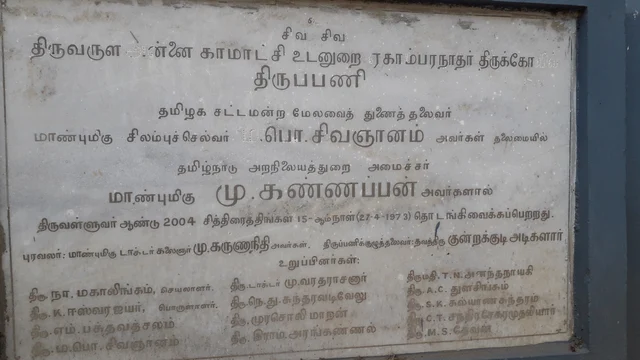 உ
சிவ சிவ
திருவருள் அன்னை காமாட்சி உடனுறை ஏகாம்பரநாதர் திருக்கோ
திருபபணி
தமிழக சட்டமன்ற மேலவைத் துணைத் தலைவர்
மாண்புமிகு சிலம்புச்செல்வர் பொ.சிவஞானம் அவர்கள் தலைமையில்
தமிழ்நாடு அறநிலையத்துறை அமைச்சர்
மாண்புமிகு மு.கண்ணப்பன் அவர்களால்
திருவள்ளுவர் ஆண்டு 2004 சித்திரைத்திங்கள் 15-ஆம்நாள்(27-4-1973) தொடங்கிவைக்கப்பெற்றது.
புரவலர்: மாண்புமிகு டாக்டர் கலைஞர் மு.கருணாநிதி அவர்கள். திருப்பணிக்குழுத்தலைவர்: தவத்திரு குன்றக்குடி அடிகளார்
உறுப்பினர்கள்:
திரு. நா. மகாலிங்கம், செயலாளர். திரு.டாக்டர் மு.வரதராசனார் திருமதி. T.N. அனந்தநாயகி
திரு. K. ஈஸ்வர ஐயர், பொருளாளர். திரு.நெ.து.சுந்தரவடிவேலு திரு. A.C. துளசிங்கம்
திரு.எம். பக்தவத்சலம் திரு.முரசொலி மாறன் திரு. S.K. கல்யாணசுந்தரம்
திரு.ம.பொ. சிவஞானம் திரு.இராம அரங்கண்ணல் திரு. C.T. சந்திரசேகரமுதலியார்
திரு. M.S.